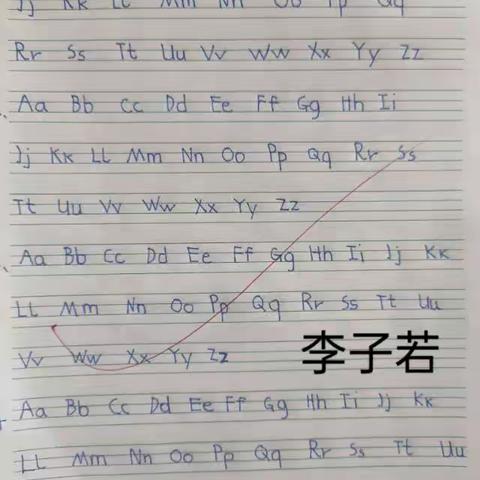 Jj Kk Ll Mm Nn Oo Pp Qq
Rr Ss Tt Uu Vv Ww Xx Yy Zz
Aa Bb Cc Dd Ee Ff Gg Hh Ii
Jj Kk Ll Mm Nn Oo Pp Qq Rr Ss
Tt Uu Vv Ww Xx Yy Zz
Aa Bb Cc Dd Ee Ff Gg Hh Ii Jj Kk
Ll Mm Nn Oo Pp Qq Rr Ss Tt Uu
Vv Ww Xx Yy Zz
李子若
Aa Bb Cc Dd Ee Ff Gg Hh Ii Jj Kk
Ll Mm Nn Oo Pp Qq Rr Ss Tt Uu